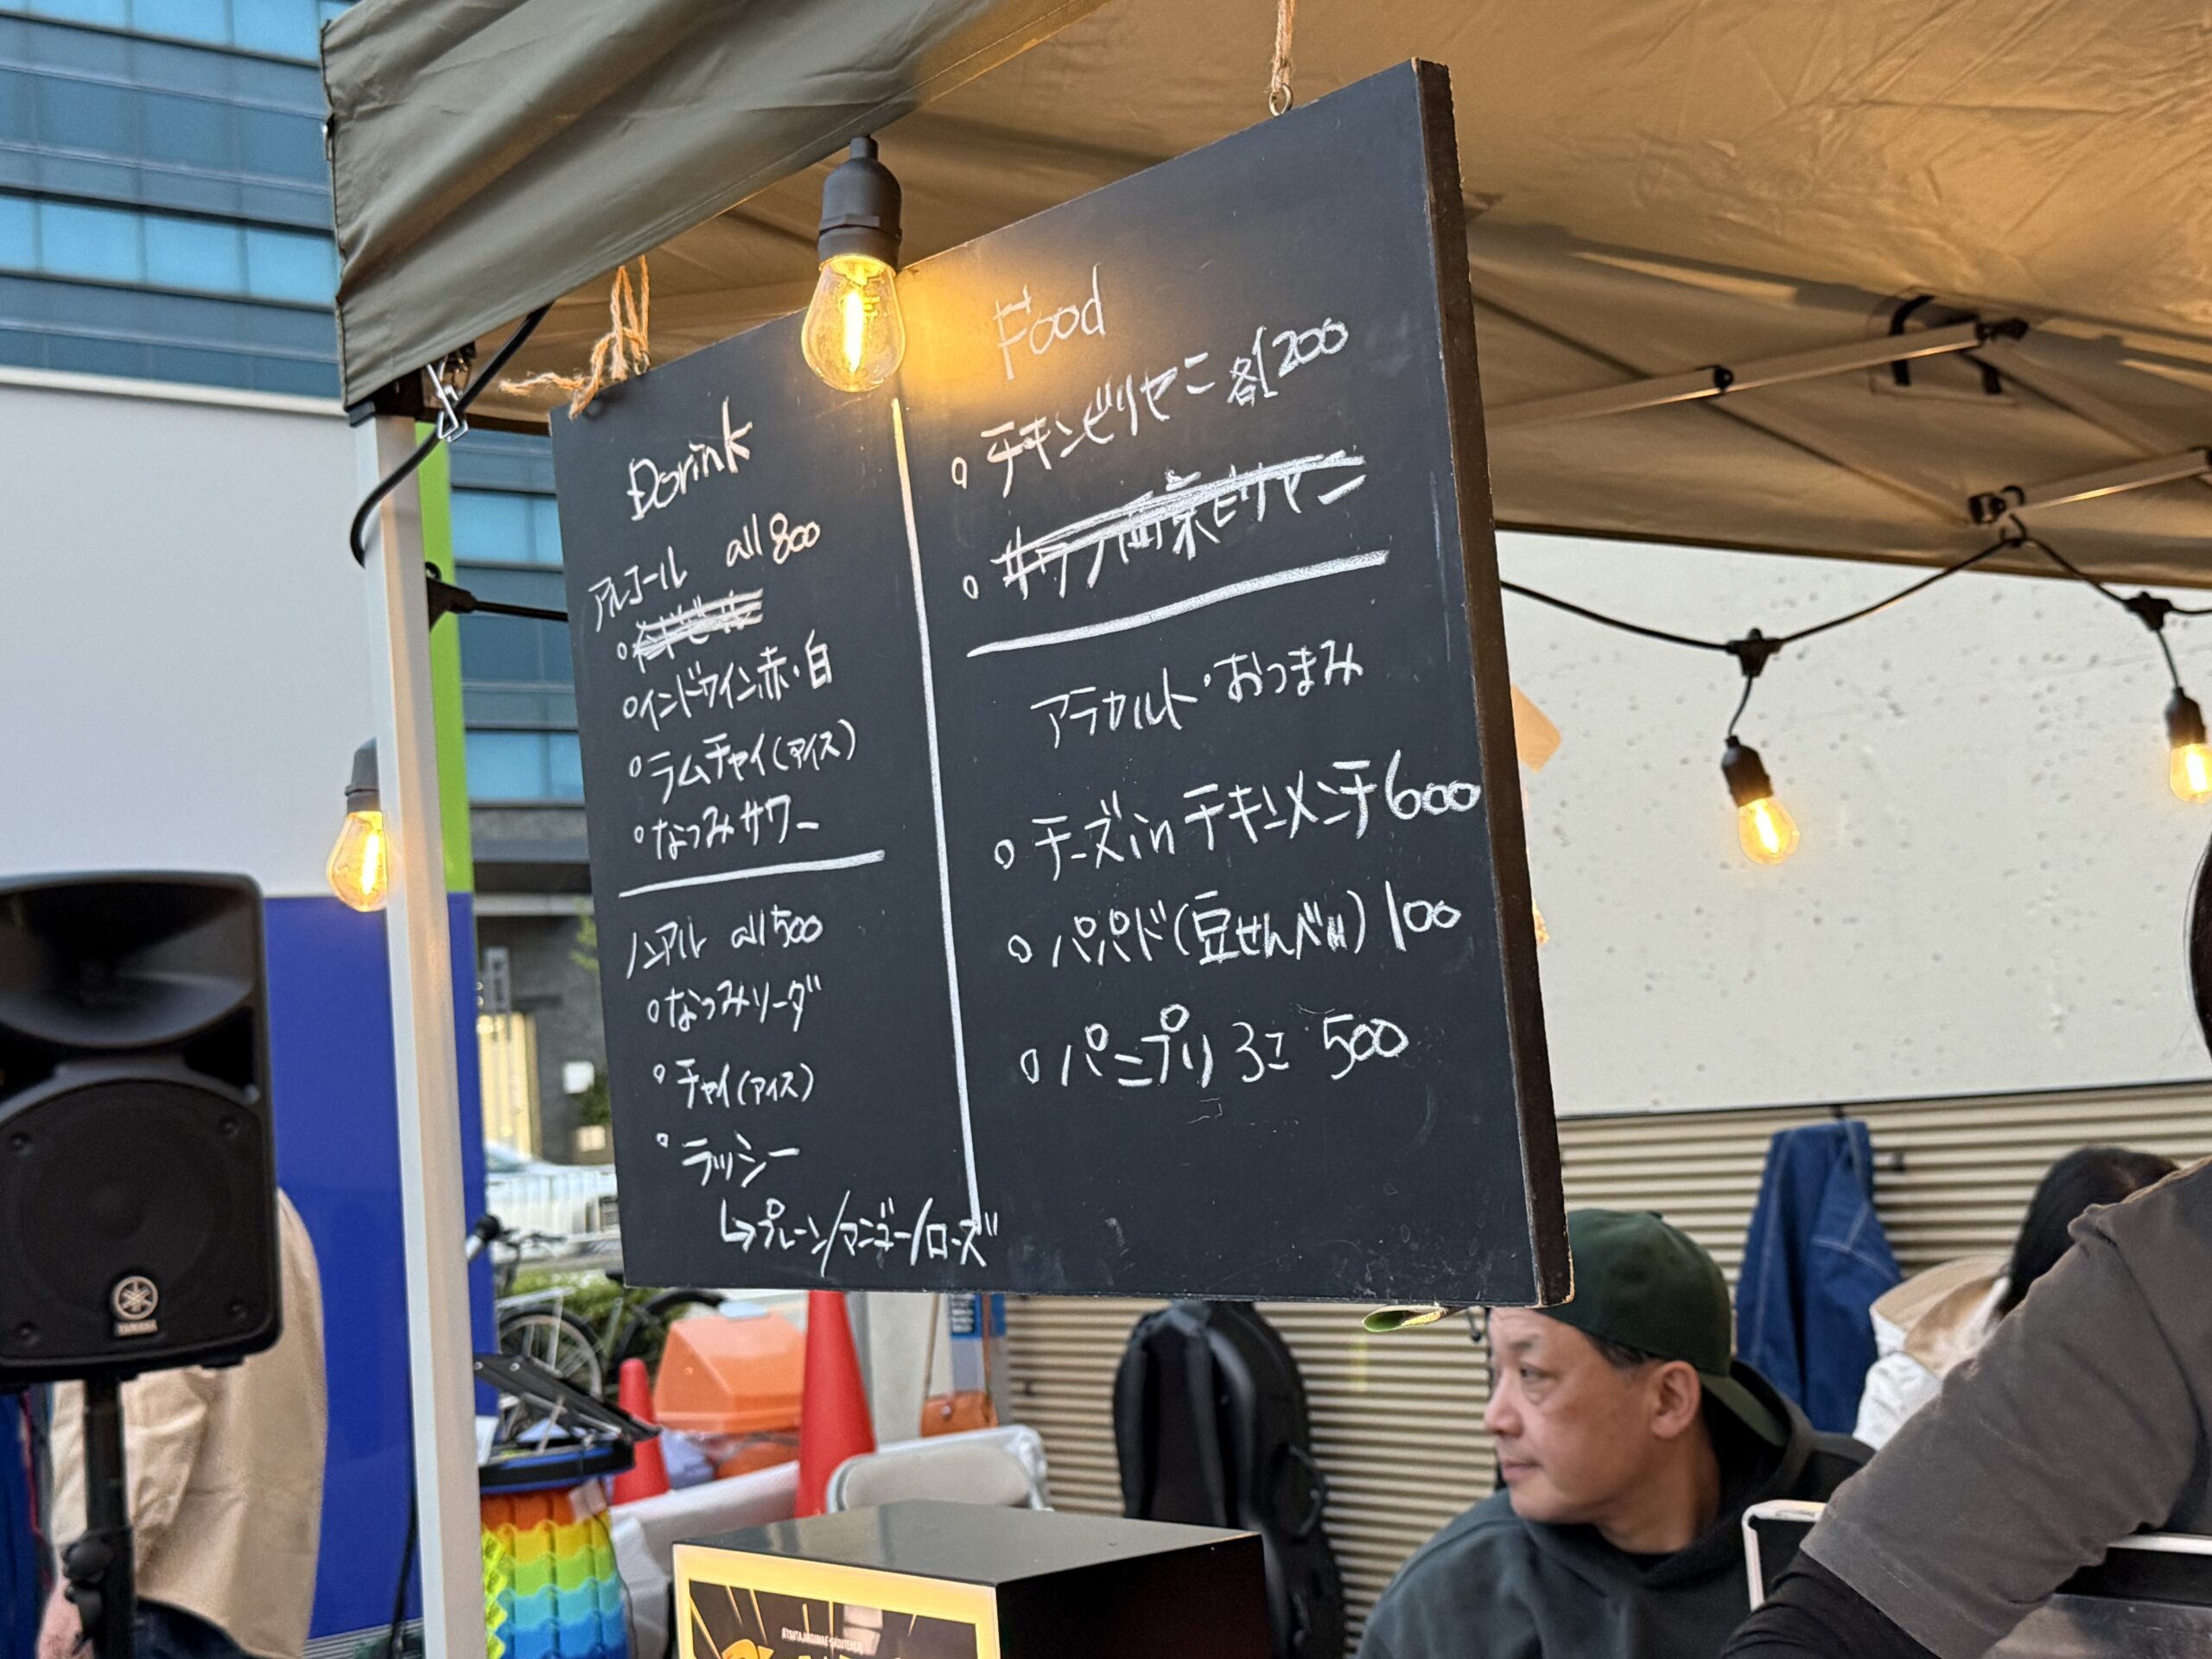 Dorink
アルコール all 800
インドワイン赤・白
ラムチャイ(アイス)
なつみサワー
ノンアル all 500
なつみソーダ
チャイ(アイス)
ラッシー
↳プレーン/マンゴー/ローズ
Food
チキンビリヤニ 各1200
ビリヤニ
アラカルト・おつまみ
チーズinチキンメンチ600
パパド(豆せんべい)100
パニプリ 3コ 500
YAMAHA